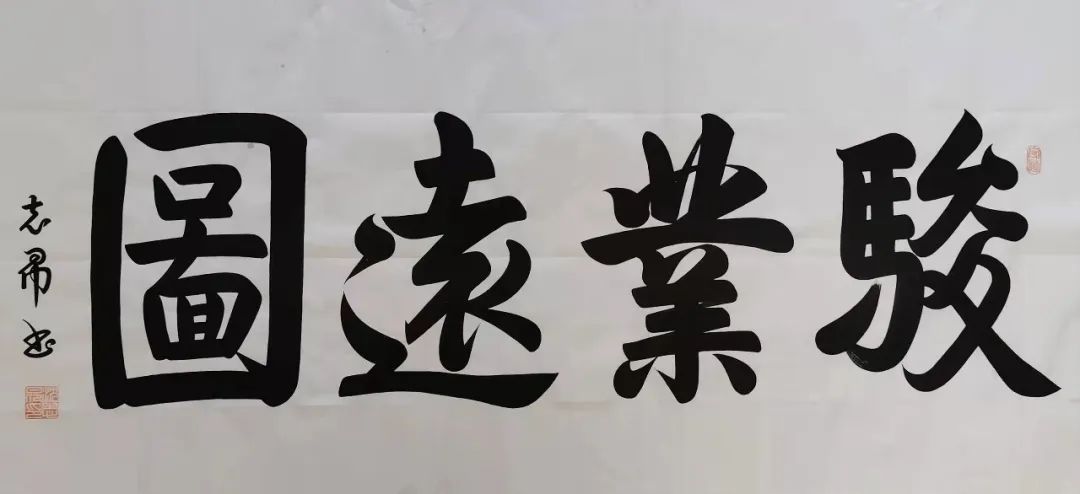 駿業遠圖
志帚书